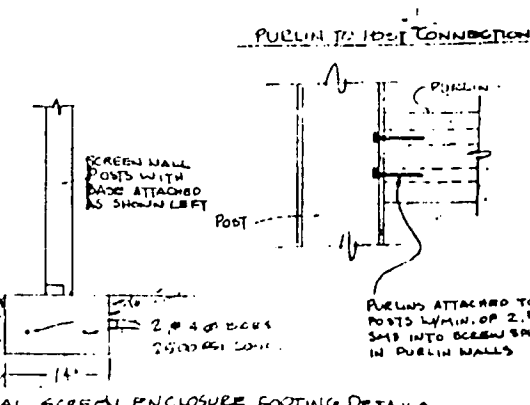 PURLIN TO POST CONNECTION
PURLIN
SCREEN WALL
POSTS WITH
BASE ATTACHED
AS SHOWN LEFT
POST
PURLINS ATTACHED TO
POSTS W/MIN. OF 2
SMS INTO SCREEN
IN PURLIN WALLS
2 # 4
2500 PSI CONC.
14"
SCREEN ENCLOSURE FOOTING DETAILS